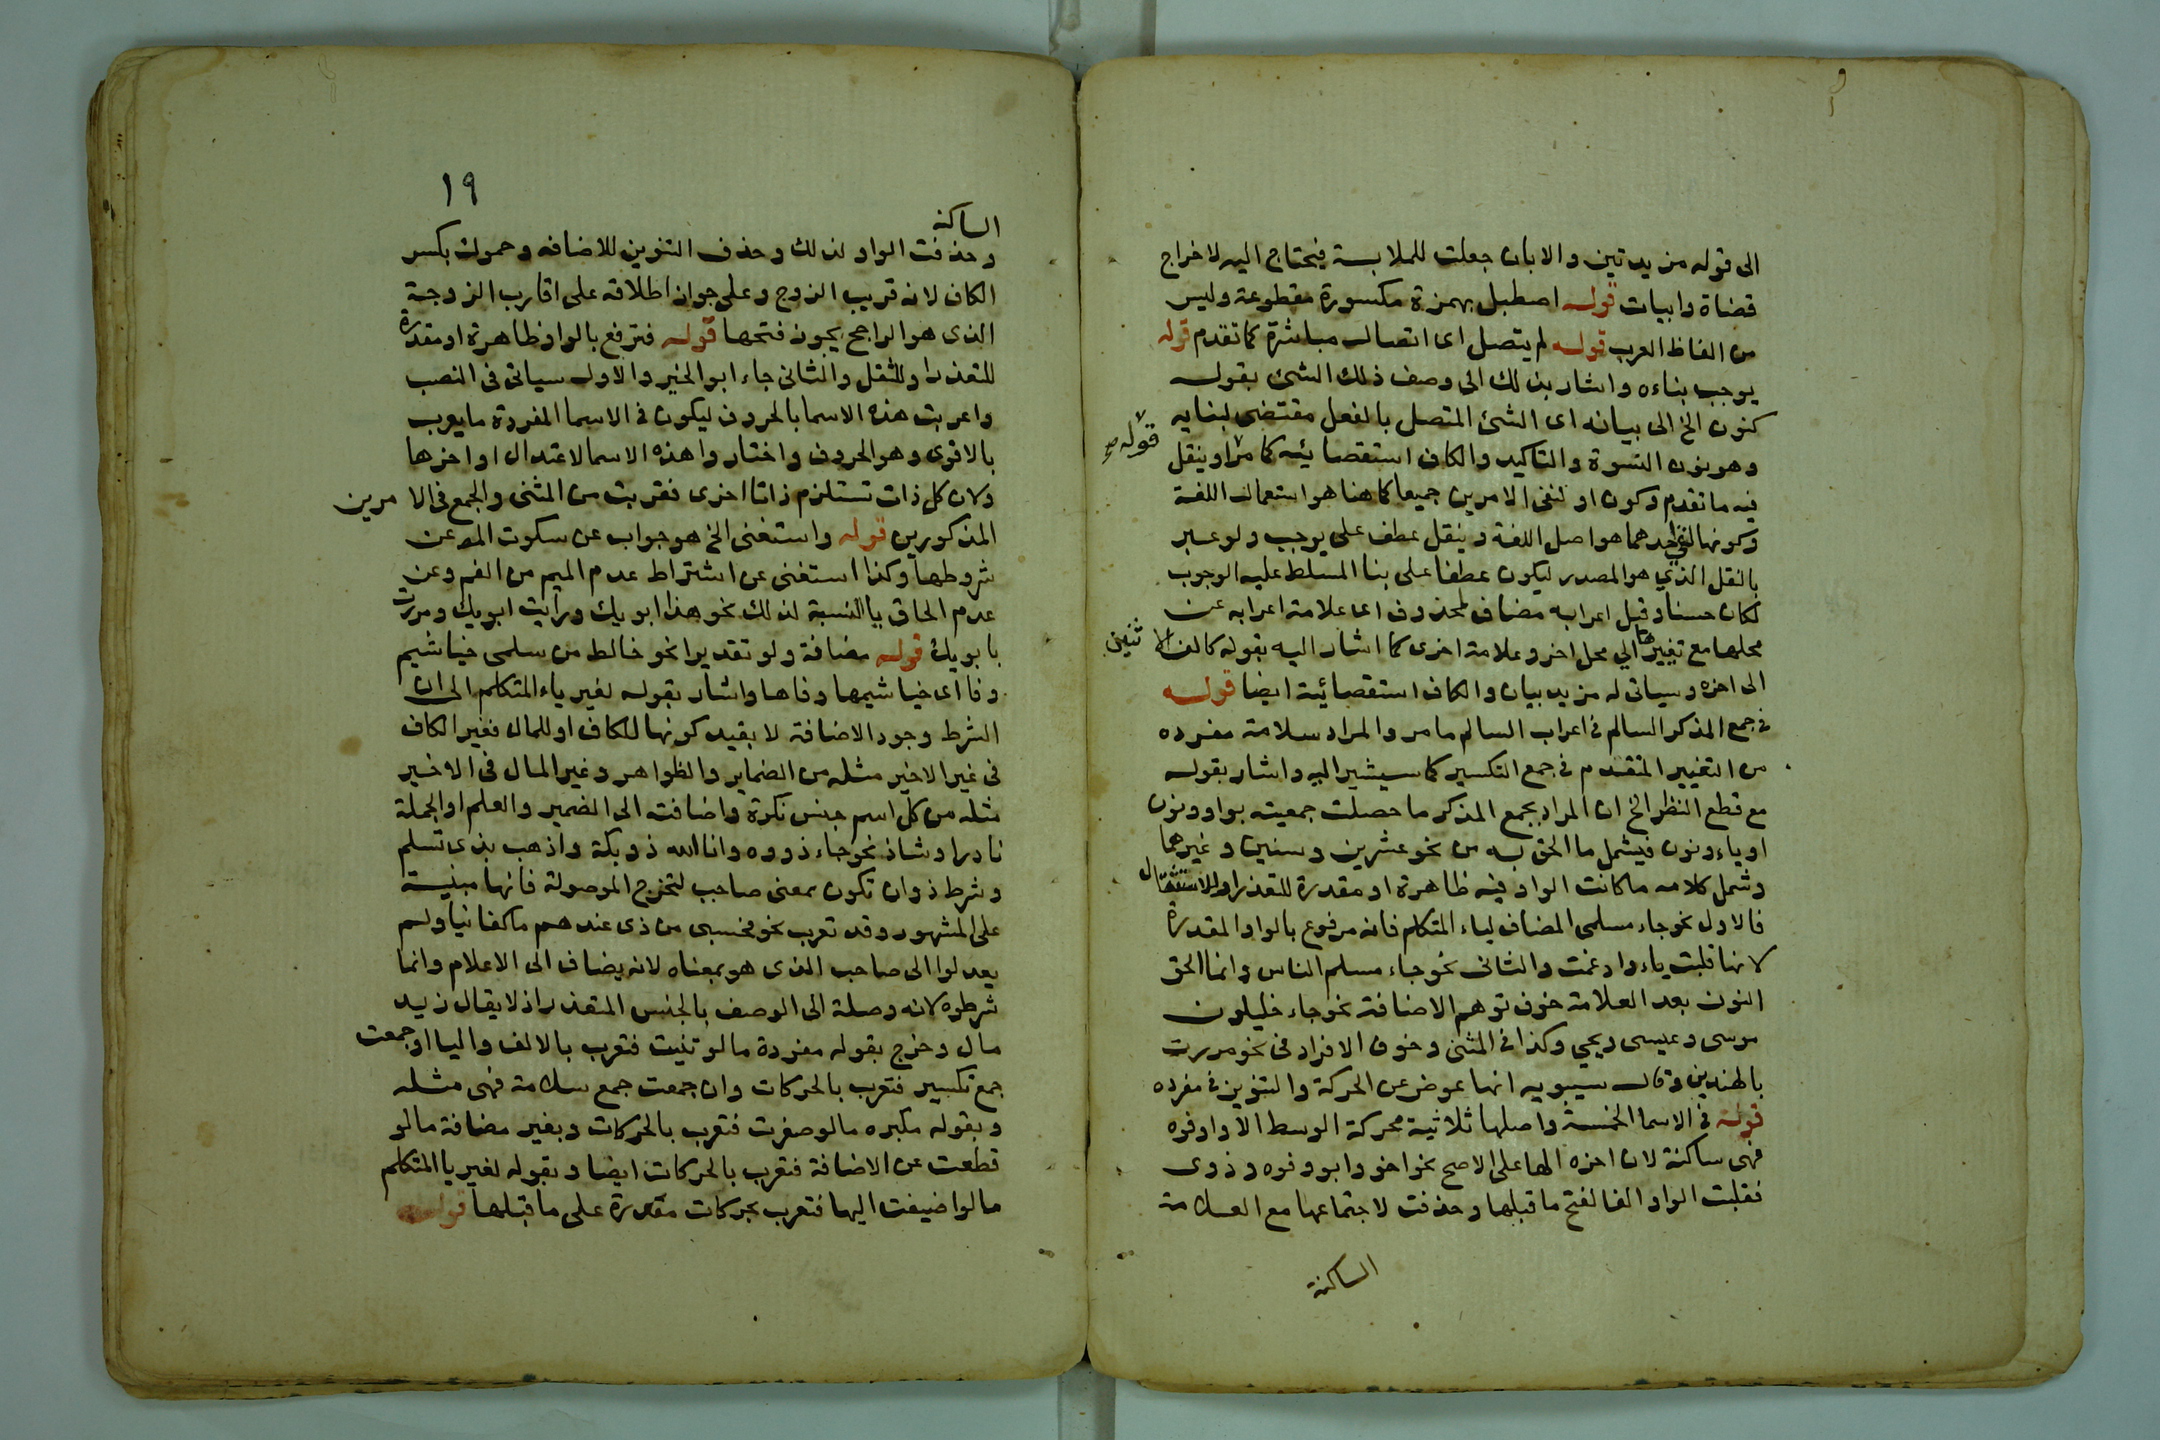 الى قوله مزيدتين والا بان جعلت للملابسة فيحتاج اليه لاخراج
قضاة وابيات قوله اصطبل بهمزة مكسورة مقطوعة وليس
من الفاظ العرب قوله لم يتصل اى اتصال مباشرة كما تقدم قوله
يوجب بناءه واشار بذلك الى وصف ذلك الشئ بقوله
كنون الخ الى بيانه اى الشئ المتصل بالفعل مقتضى لبنايه
وهو نون النسوة والتاكيد والكاف استقصائيه كما مر او ينقل
قوله
فيه ما تقدم وكون او لنفى الامرين جميعا كما هنا هو استعمال اللغة
وكونها لنفى احدهما هو اصل اللغة وينقل عطف على يوجب ولو عبر
بالنقل الذي هو المصدر ليكون عطفا على بنا المسلط عليه الوجوب
لكان حسنا وقبل اعرابه مضاف محذوف اى علامة اعرابه عن
محلها مع تغييرها الي محل اخر وعلامة اخرى كما اشار اليه بقوله كالف الاثنين
الى اخره وسياتى له مزيد بيان والكاف استقصائية ايضا قوله
فى جمع المذكر السالم فى اعراب السالم ما مر والمراد سلامة مفرده
من التغيير المتقدم فى جمع التكسير كما سيشير اليه واشار بقوله
مع قطع النظر الخ ان المراد بجمع المذكر ما حصلت جمعيته بواو ونون
او ياء ونون فيشمل ما الحق به من نحو عشرين وسنين وغيرهما
وشمل كلامه ما كانت الواو فيه ظاهرة او مقدرة للتعذر او الاستثقال
فالاول نحو جاء مسلمى المضاف لياء المتكلم فانه مرفوع بالواو المقدرة
لانها قلبت ياء وادغمت والثانى نحو جاء مسلم الناس وانما الحق
النون بعد العلامة خوف توهم الاضافة نحو جاء خليلون
موسى وعيسى ويحيي وكذا فى المثنى وخوف الافراد فى نحو مررت
بالهندين وقال سيبويه انها عوض عن الحركة والتنوين فى مفرده
قوله فى الاسما الخمسة واصلها ثلاثية محركة الوسط الا واو فوه
فهى ساكنة لان اخره الها على الاصح نحو اخو وابو وفوه وذوى
فقلبت الواو الفا لفتح ما قبلها وحذفت لاجتماعها مع العلامة
الساكنة
١٩
الساكنة
وحذفت الواو لذلك وحذف التنوين للاضافه وحموك بكسر
الكاف لانه قريب الزوج وعلى جواز اطلاقه على اقارب الزوجة
الذى هو الراجح يجوز فتحها قوله فترفع بالواو ظاهرة او مقدرة
للتعذر او للثقل والثانى جاء ابو الخير والاول سياتى فى النصب
واعربت هذه الاسما بالحروف ليكون فى الاسما المفردة ما يعرب
بالاقوى وهو الحروف واختاروا هذه الاسما لاعتدال اواخرها
ولان كل ذات تستلزم ذاتا اخرى فقربت من المثنى والجمع فى الامرين
المذكورين قوله واستغنى الخ هو جواب عن سكوت المص عن
شروطها وكذا استغنى عن اشتراط عدم الميم من الفم وعن
عدم الحاق يا النسبة لذلك نحو هذا ابويك ورايت ابويك ومررت
بابويك قوله مضافة ولو تقديرا نحو خالط من سلمى خياشيم
وفا اى خياشيمها وفاها واشار بقوله لغير ياء المتكلم الى ان
الشرط وجود الاضافة لا بقيد كونها للكاف او للمال فغير الكاف
فى غير الاخير مثله من الضماير والظواهر وغير المال فى الاخير
مثله من كل اسم جنس نكرة واضافته الى الضمير والعلم او الجملة
نادر او شاذ نحو جاء ذووه وانا الله ذو بكة واذهب بذى تسلم
وشرط ذو ان تكون بمعنى صاحب لتخرج الموصولة فانها مبنية
على المشهور وقد تعرب نحو فحسبى من ذى عندهم ما كفانيا ولم
يعدلوا الى صاحب الذى هو بمعناه لانه يضاف الى الاعلام وانما
شرطوه لانه وصلة الى الوصف بالجنس المتعذر اذ لا يقال زيد
مال وخرج بقوله مفردة ما لو ثنيت فتعرب بالالف واليا او جمعت
جمع تكسير فتعرب بالحركات وان جمعت جمع سلامة فهى مثله
وبقوله مكبره ما لو صغرت فتعرب بالحركات وبغير مضافة ما لو
قطعت عن الاضافة فتعرب بالحركات ايضا وبقوله لغير يا المتكلم
ما لو اضيفت اليها فتعرب بحركات مقدرة على ما قبلها قوله